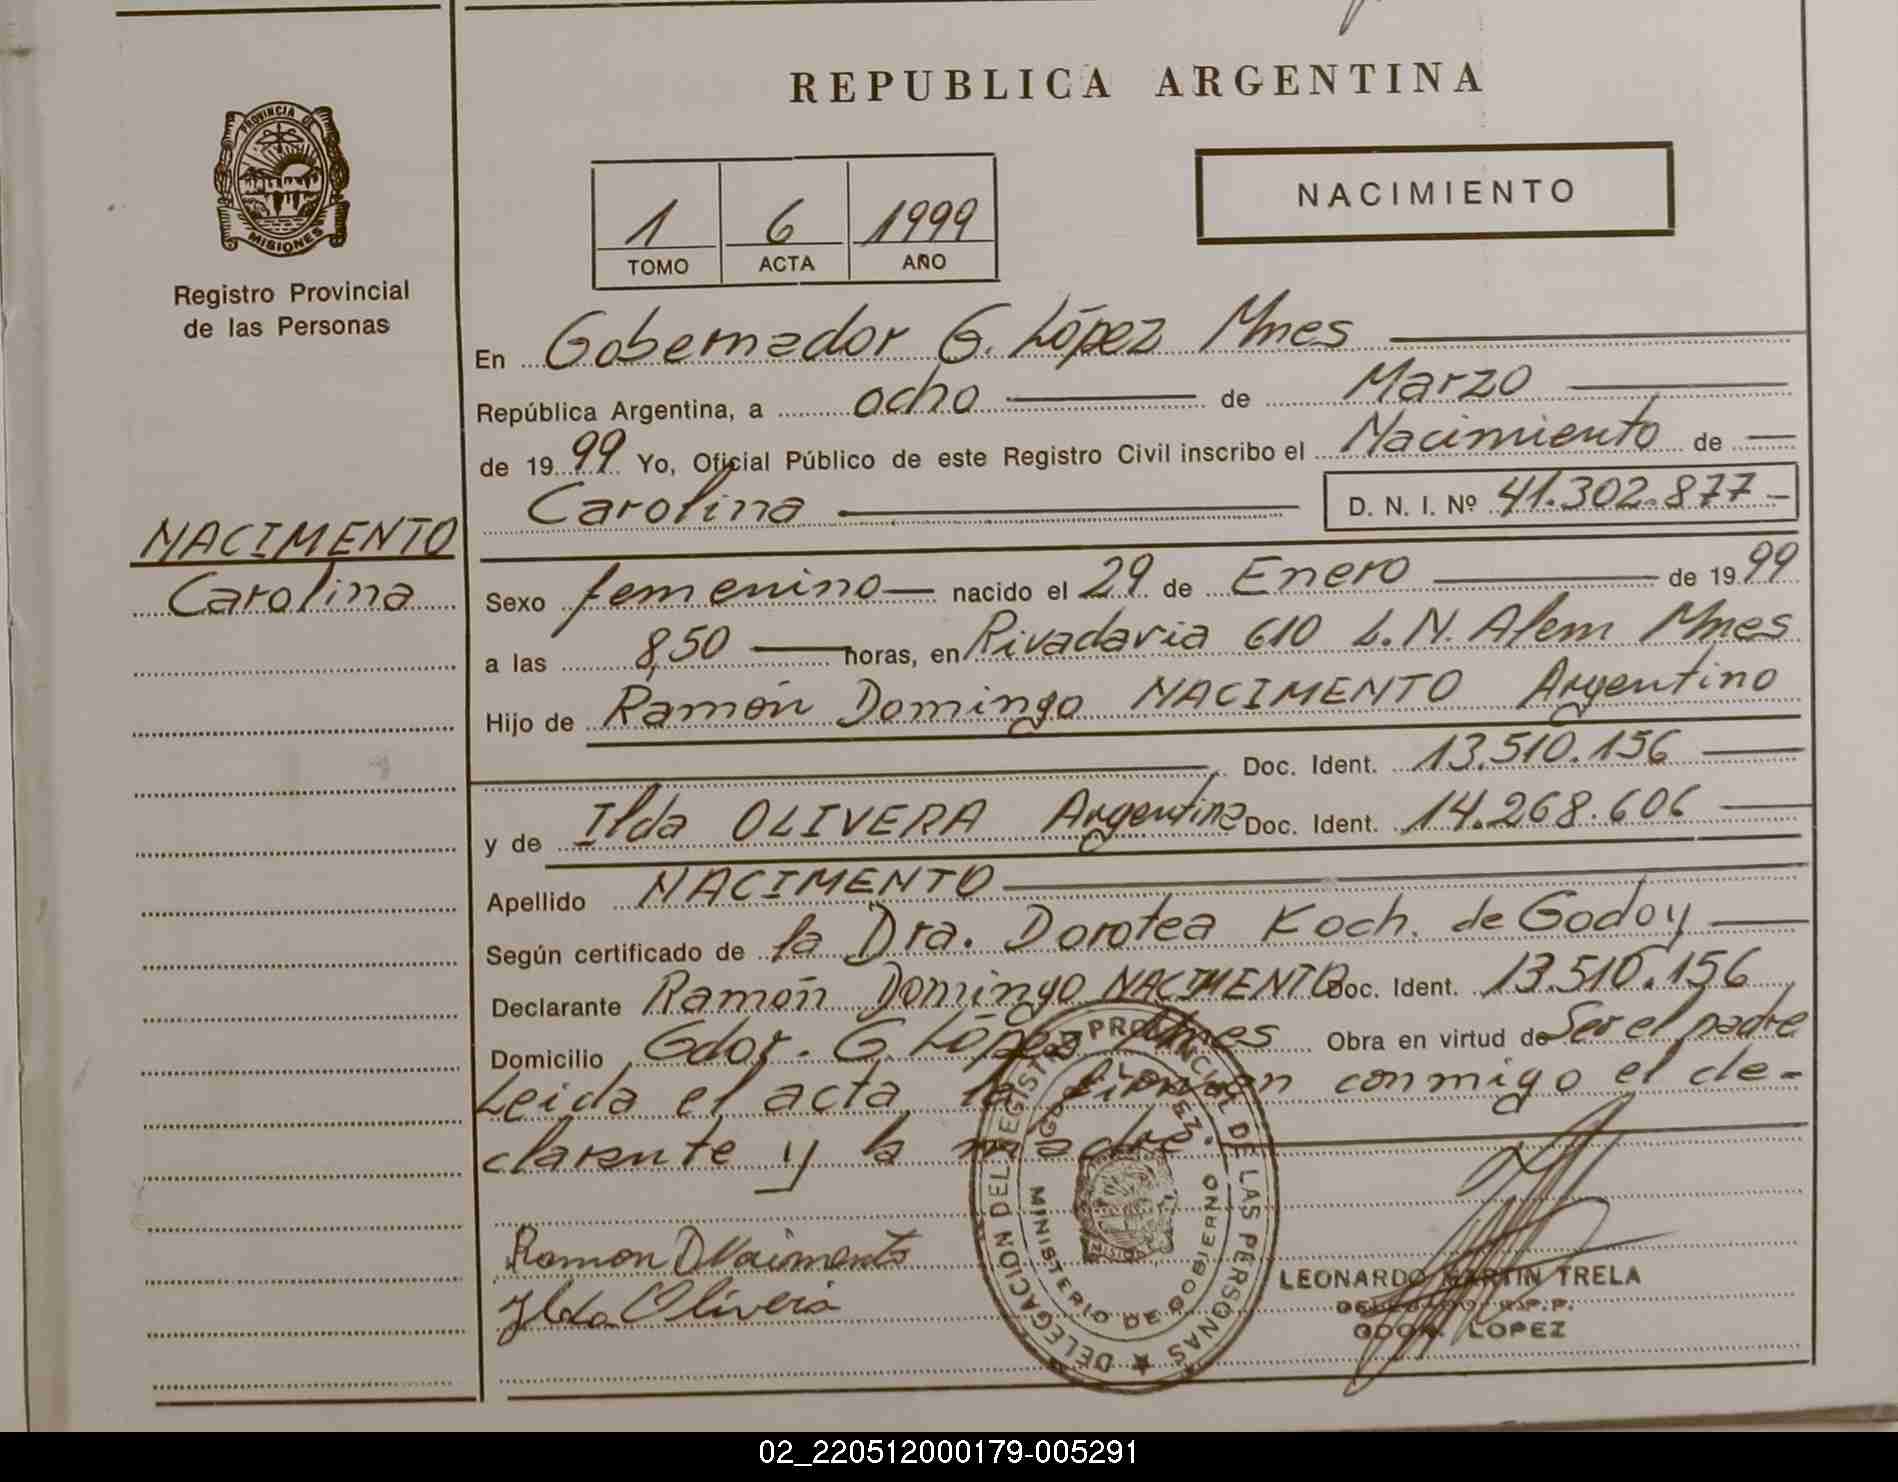 REPUBLICA ARGENTINA
PROVINCIA DE
MISIONES
Registro Provincial
de las Personas
1 6 1999
TOMO ACTA AÑO
NACIMIENTO
En Gobernador G. López Mnes
República Argentina, a ocho de Marzo
de 1999 Yo, Oficial Público de este Registro Civil inscribo el Nacimiento de
Carolina D. N. I. Nº 41.302.877
NACIMENTO
Carolina
Sexo femenino nacido el 29 de Enero de 1999
a las 8,50 horas, en Rivadavia 610 L.N. Alem Mnes
Hijo de Ramón Domingo NACIMENTO Argentino
Doc. Ident. 13.510.156
y de Ilda OLIVERA Argentina Doc. Ident. 14.268.606
Apellido NACIMENTO
Según certificado de la Dra. Dorotea Koch. de Godoy
Declarante Ramón Domingo NACIMENTO Doc. Ident. 13.510.156
Domicilio Gdor. G. López Mnes Obra en virtud de Ser el padre
Leida el acta la firman conmigo el de-
clarante y la madre
DELEGACION DEL REGISTRO PROVINCIAL DE LAS PERSONAS
LOPEZ
MINISTERIO DE GOBIERNO
MISIONES
Ramon D Nacimento
Ilda Olivera
LEONARDO MARTIN TRELA
DELEGADO R.P.P.
GDOR. LOPEZ
02_220512000179-005291